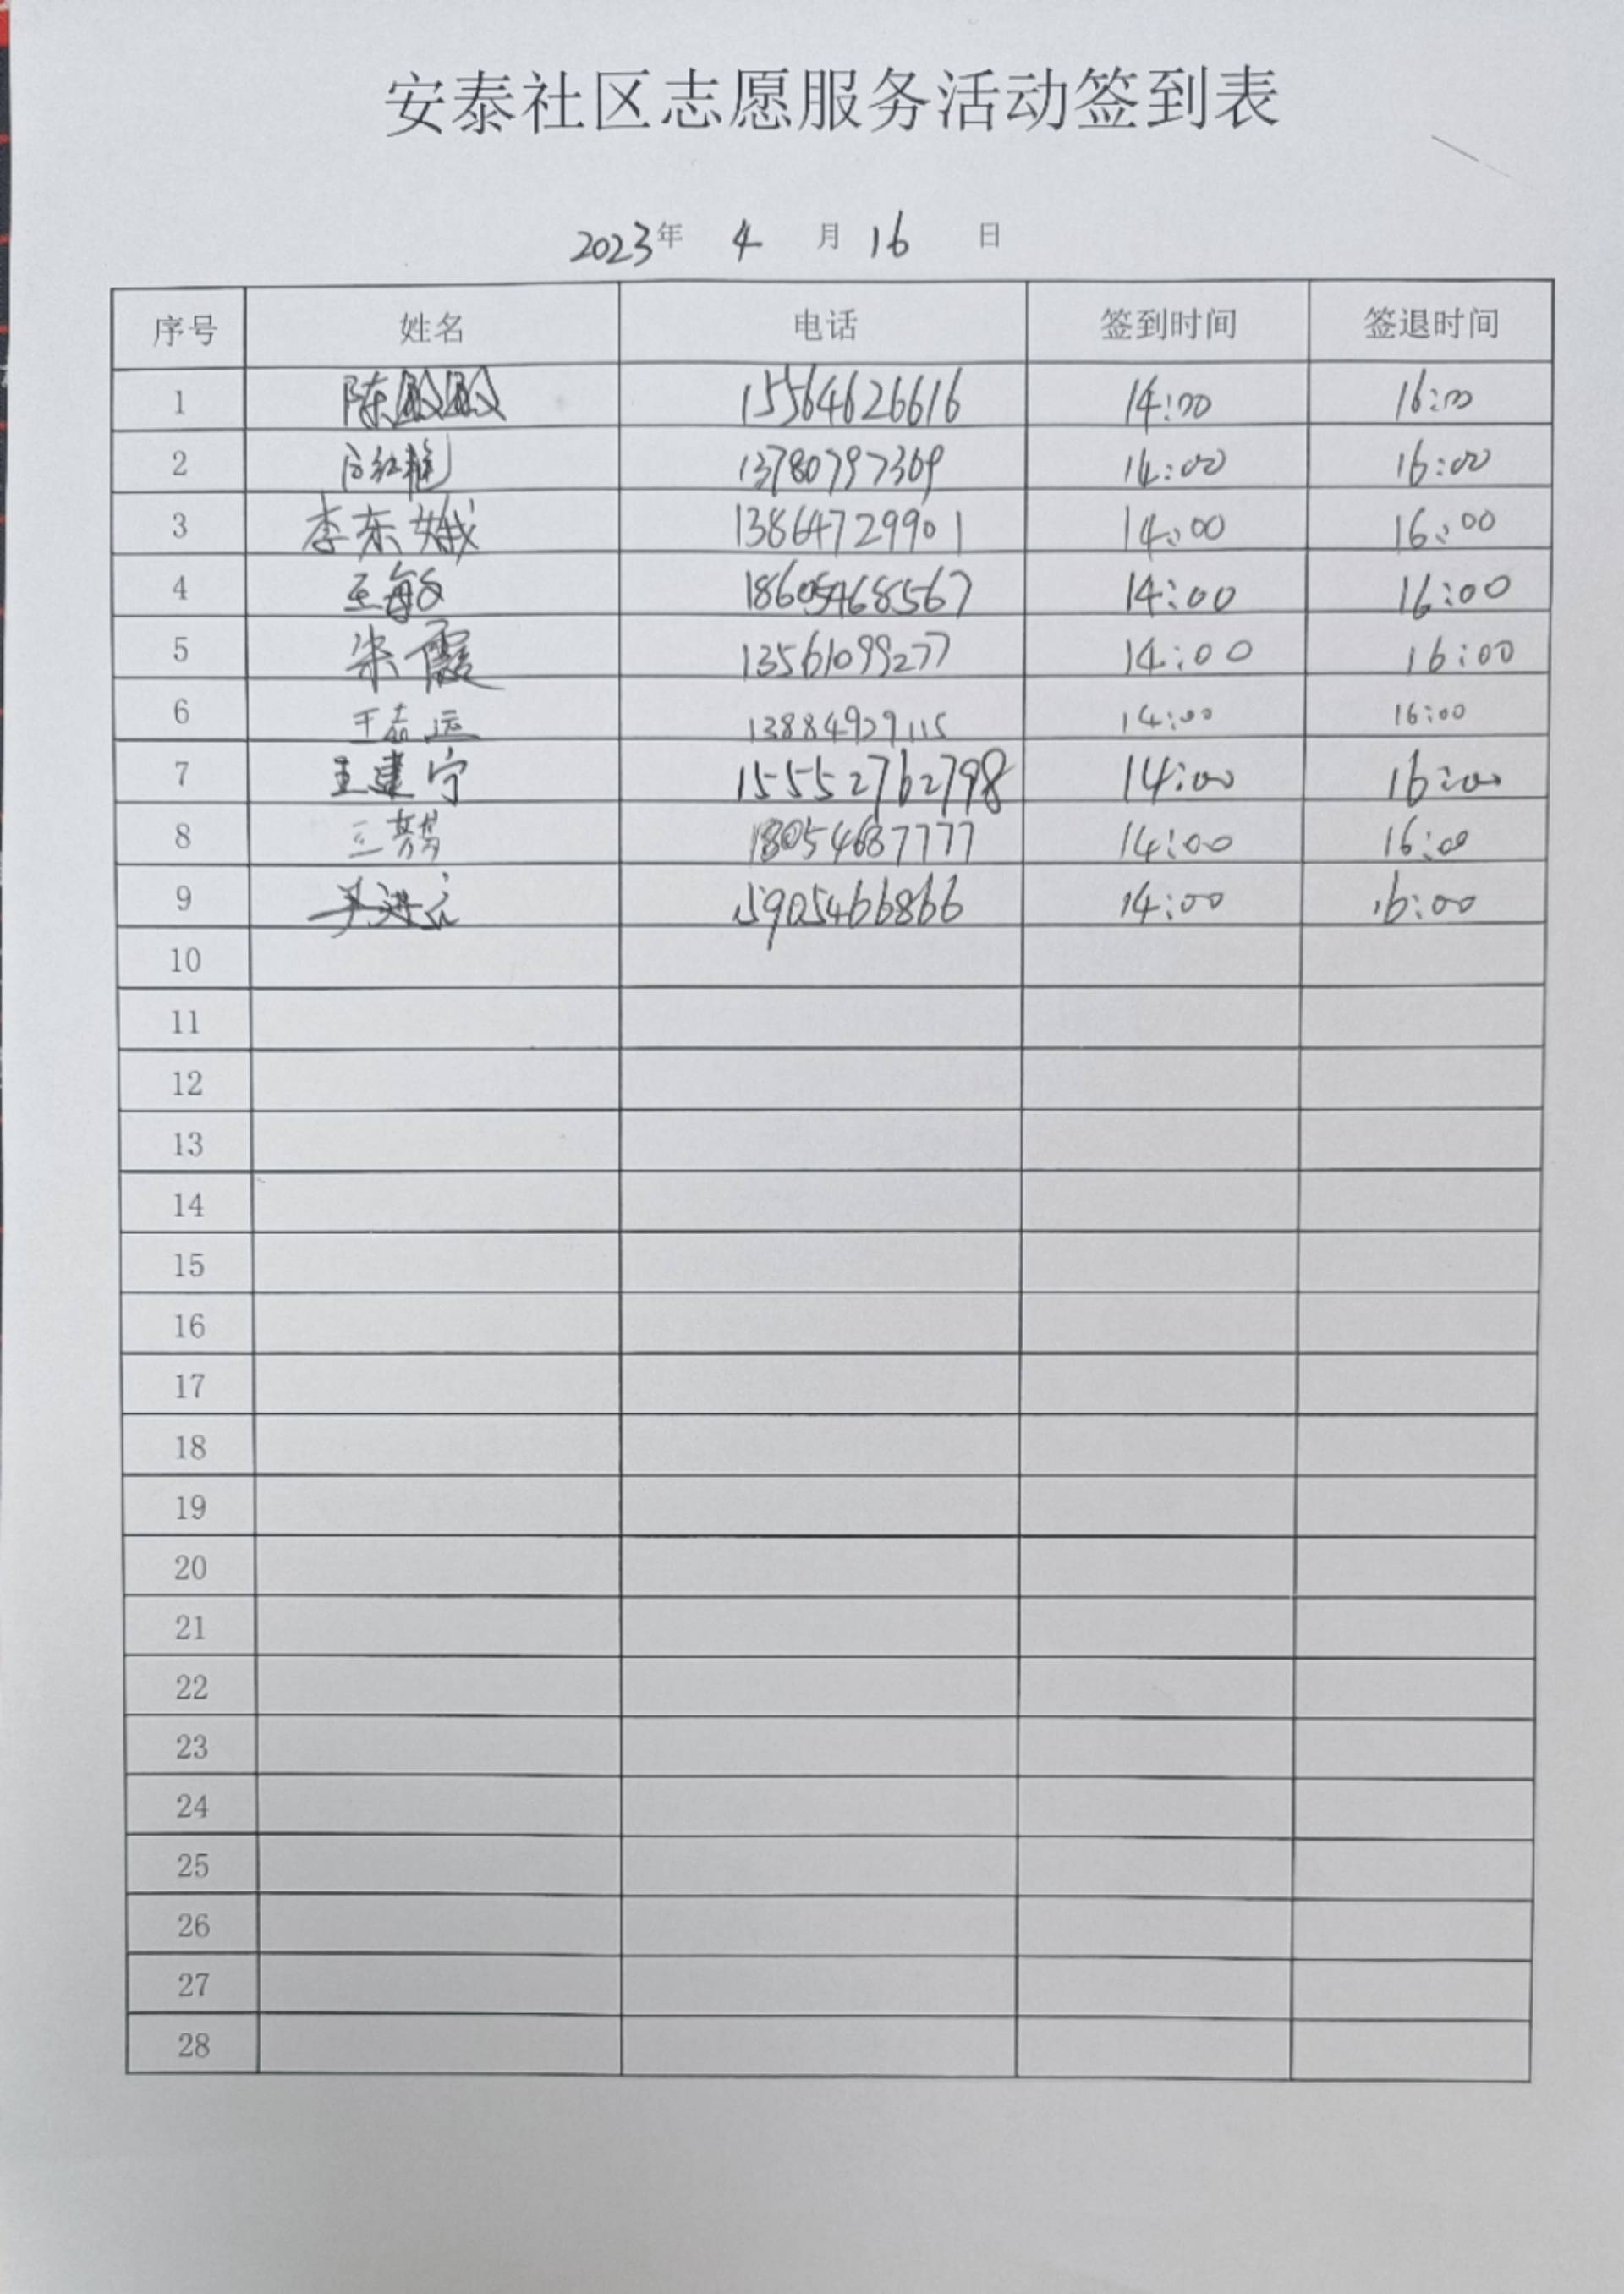 安泰社区志愿服务活动签到表
2023年 4 月 16 日
序号 姓名 电话 签到时间 签退时间
1 陈殿殿 15564626616 14:00 16:00
2 13780797369 14:00 16:00
3 李东娥 13864729901 14:00 16:00
4 王敏 18605468567 14:00 16:00
5 柒霞 13561099277 14:00 16:00
6 王志远 13884929115 14:00 16:00
7 王建宁 15552762798 14:00 16:00
8 18054687777 14:00 16:00
9 15905466866 14:00 16:00
10
11
12
13
14
15
16
17
18
19
20
21
22
23
24
25
26
27
28